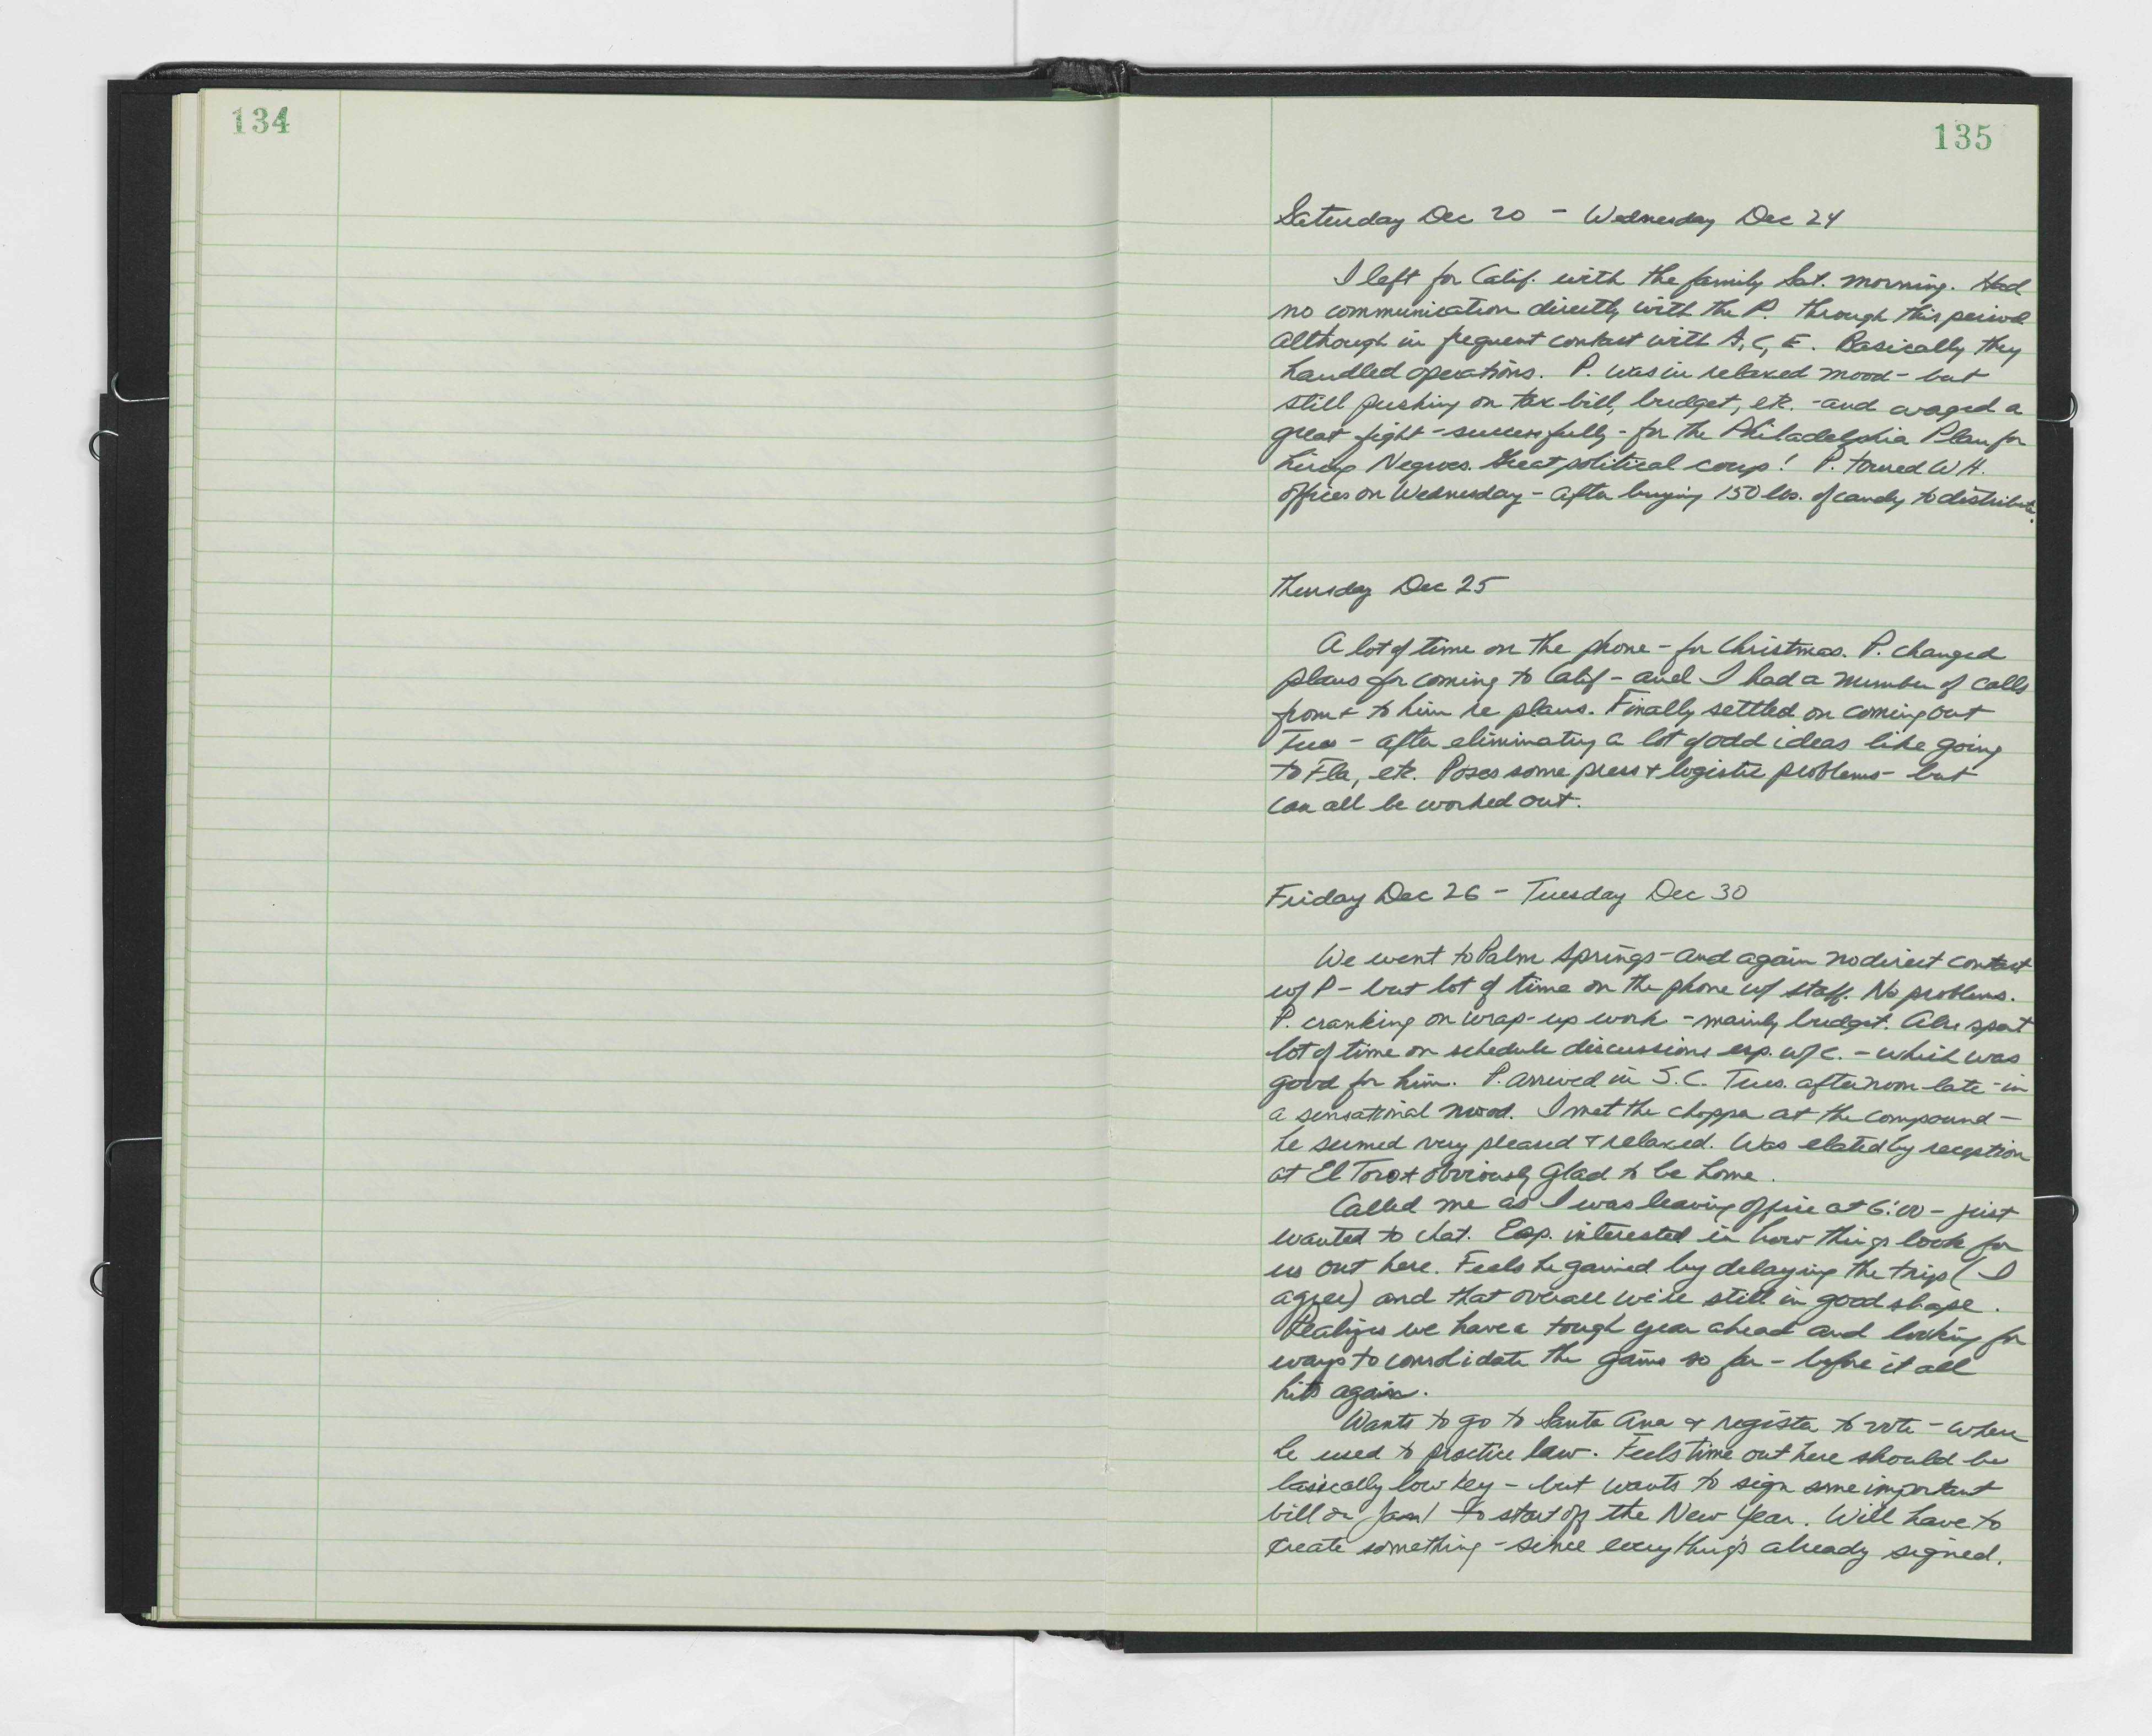 134
135
Saturday Dec 20 - Wednesday Dec 24
I left for Calif. with the family Sat. morning. Had
no communication directly with the P. through this period
although in frequent contact with A, C, E. Basically they
handled operations. P. was in relaxed mood - but
still pushing on tax bill, budget, etc. - and waged a
great fight - successfully - for the Philadelphia Plan for
hiring Negroes. Great political coup! P. toured W.H.
offices on Wednesday - after buying 150 lbs. of candy to distribute.
Thursday Dec 25
A lot of time on the phone - for Christmas. P. changed
plans for coming to Calif - and I had a number of calls
from & to him re plans. Finally settled on coming out
Tues - after eliminating a lot of odd ideas like going
to Fla, etc. Poses some press & logistic problems - but
can all be worked out.
Friday Dec 26 - Tuesday Dec 30
We went to Palm Springs - and again no direct contact
w/ P - but lot of time on the phone w/ staff. No problems.
P. cranking on wrap-up work - mainly budget. Also spent
lot of time on schedule discussions esp. w/ C. - which was
good for him. P. arrived in S.C. Tues. afternoon late - in
a sensational mood. I met the chopper at the compound -
he seemed very pleased & relaxed. Was elated by reception
at El Toro & obviously glad to be home.
Called me as I was leaving office at 6:00 - just
wanted to chat. Esp. interested in how things look for
us out here. Feels he gained by delaying the trip (I
agree) and that overall we're still in good shape.
Realizes we have a tough year ahead and looking for
ways to consolidate the gains so far - before it all
hits again.
Wants to go to Santa Ana & register to vote - where
he used to practice law. Feels time out here should be
basically low key - but wants to sign some important
bill on Jan 1 to start off the New Year. Will have to
create something - since everything's already signed.